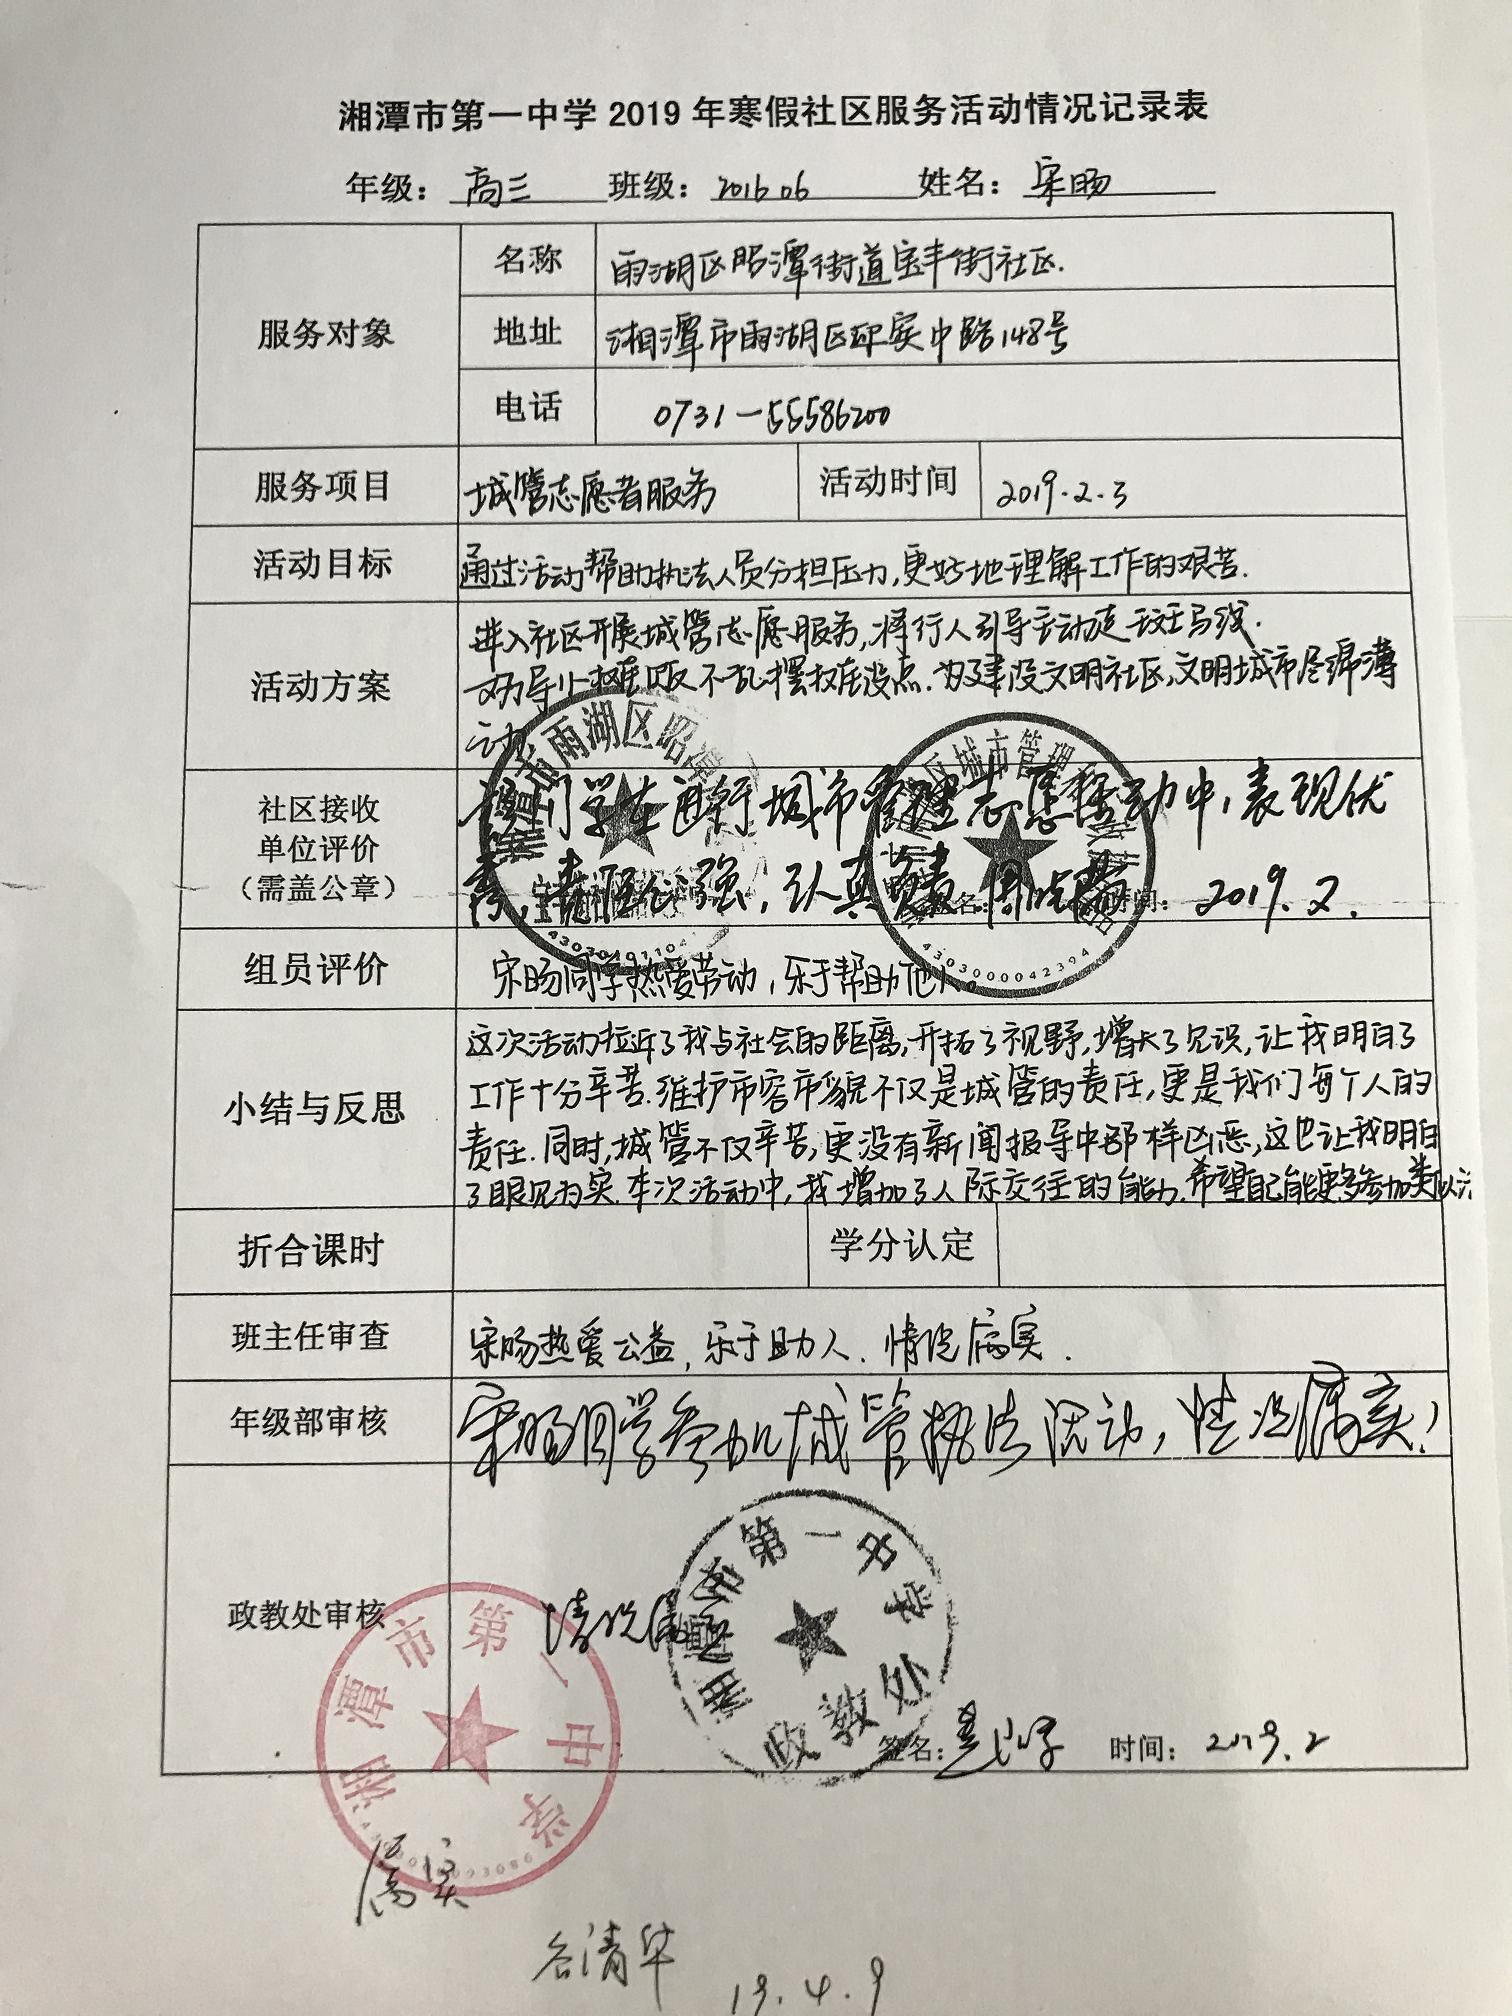 湘潭市第一中学 2019 年寒假社区服务活动情况记录表
年级：高三 班级：201606 姓名：宋旸
服务对象 名称 雨湖区昭潭街道宝丰街社区.
地址 湘潭市雨湖区砚宾中路148号
电话 0731-55586200
服务项目 城管志愿者服务 活动时间 2019.2.3
活动目标 通过活动帮助执法人员分担压力,更好地理解工作的艰苦.
活动方案 进入社区开展城管志愿服务,将行人引导主动走斑马线.
劝导小摊贩不乱摆摊设点.为建设文明社区,文明城市尽绵薄
之力
社区接收
单位评价
（需盖公章）
同学在 城市管理志愿活动中，表现优
秀，责任心强，认真负责. 时间： 2019.2.
雨湖区昭潭
城市管理
4303000042394
组员评价 宋旸同学热爱劳动，乐于帮助他人.
小结与反思 这次活动拉近了我与社会的距离,开拓了视野,增长了见识,让我明白了
工作十分辛苦.维护市容市貌不仅是城管的责任,更是我们每个人的
责任.同时,城管不仅辛苦,更没有新闻报导中那样凶恶,这也让我明白
了眼见为实.本次活动中,我增加了人际交往的能力.希望自己能更多参加类似
折合课时 学分认定
班主任审查 宋旸热爱公益,乐于助人.情况属实.
年级部审核 宋旸同学参加城管执法活动，情况属实！
政教处审核 情况属实
市第一中学
政教处
签名： 时间： 2019.2
湘潭市第一中学
属实
谷清华
19.4.9